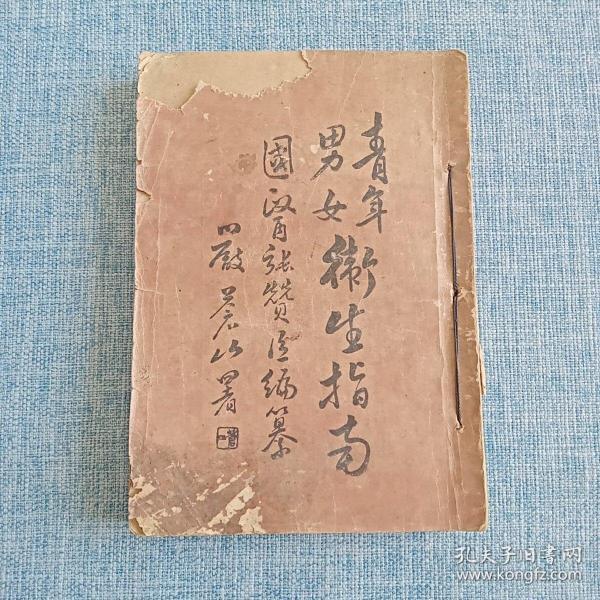 青年
男女
衛生指南
國醫張贊臣編纂
蒼山署
孔夫子旧书网
www.kongfz.com